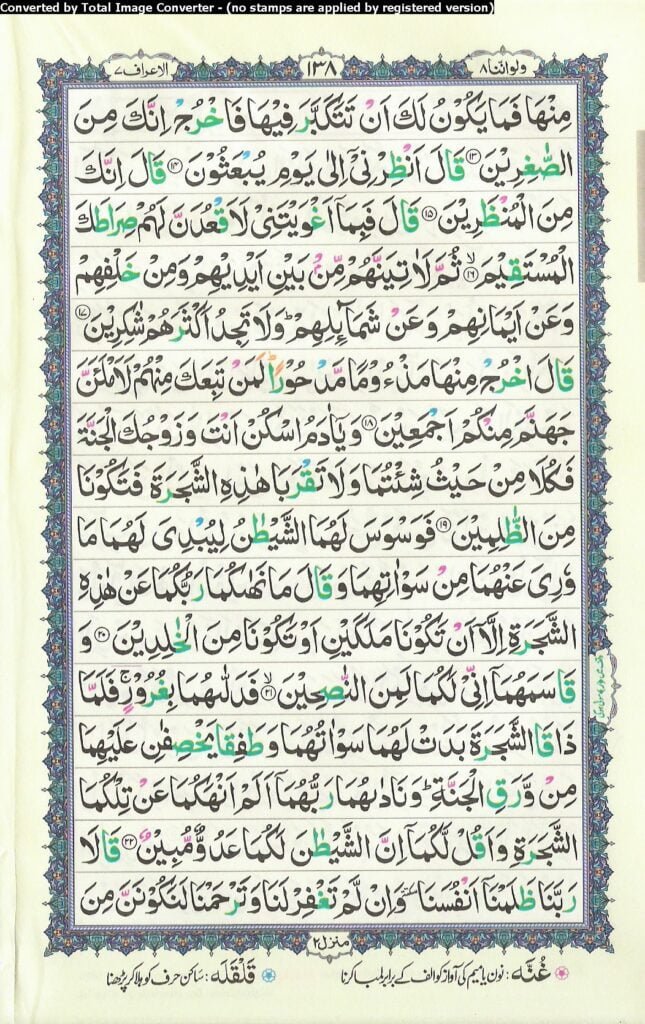 Converted by Total Image Converter - (no stamps are applied by registered version)
ولواننا ٨
١٣٨
الاعراف ٧
مِنْهَا فَمَا يَكُوْنُ لَكَ اَنْ تَتَكَبَّرَ فِيْهَا فَاخْرُجْ اِنَّكَ مِنَ
الصّٰغِرِيْنَ ١٣ قَالَ اَنْظِرْنِيْٓ اِلٰى يَوْمِ يُبْعَثُوْنَ ١٤ قَالَ اِنَّكَ
مِنَ الْمُنْظَرِيْنَ ١٥ قَالَ فَبِمَآ اَغْوَيْتَنِيْ لَاَقْعُدَنَّ لَهُمْ صِرَاطَكَ
الْمُسْتَقِيْمَ ١٦ ثُمَّ لَاٰتِيَنَّهُمْ مِّنْۢ بَيْنِ اَيْدِيْهِمْ وَمِنْ خَلْفِهِمْ
وَعَنْ اَيْمَانِهِمْ وَعَنْ شَمَآئِلِهِمْ ؕ وَلَا تَجِدُ اَكْثَرَهُمْ شٰكِرِيْنَ ١٧
قَالَ اخْرُجْ مِنْهَا مَذْءُوْمًا مَّدْحُوْرًا ؕ لَمَنْ تَبِعَكَ مِنْهُمْ لَاَمْلَـَٔنَّ
جَهَنَّمَ مِنْكُمْ اَجْمَعِيْنَ ١٨ وَيٰٓاٰدَمُ اسْكُنْ اَنْتَ وَزَوْجُكَ الْجَنَّةَ
فَكُلَا مِنْ حَيْثُ شِئْتُمَا وَلَا تَقْرَبَا هٰذِهِ الشَّجَرَةَ فَتَكُوْنَا
مِنَ الظّٰلِمِيْنَ ١٩ فَوَسْوَسَ لَهُمَا الشَّيْطٰنُ لِيُبْدِيَ لَهُمَا مَا
وٗرِيَ عَنْهُمَا مِنْ سَوْاٰتِهِمَا وَقَالَ مَا نَهٰىكُمَا رَبُّكُمَا عَنْ هٰذِهِ
الشَّجَرَةِ اِلَّآ اَنْ تَكُوْنَا مَلَكَيْنِ اَوْ تَكُوْنَا مِنَ الْخٰلِدِيْنَ ٢٠ وَ
قَاسَمَهُمَآ اِنِّيْ لَكُمَا لَمِنَ النّٰصِحِيْنَ ٢١ فَدَلّٰىهُمَا بِغُرُوْرٍ ۚ فَلَمَّا
ذَاقَا الشَّجَرَةَ بَدَتْ لَهُمَا سَوْاٰتُهُمَا وَطَفِقَا يَخْصِفٰنِ عَلَيْهِمَا
مِنْ وَّرَقِ الْجَنَّةِ ؕ وَنَادٰىهُمَا رَبُّهُمَآ اَلَمْ اَنْهَكُمَا عَنْ تِلْكُمَا
الشَّجَرَةِ وَاَقُلْ لَّكُمَآ اِنَّ الشَّيْطٰنَ لَكُمَا عَدُوٌّ مُّبِيْنٌ ٢٢ قَالَا
رَبَّنَا ظَلَمْنَآ اَنْفُسَنَا ٚ سكتة وَاِنْ لَّمْ تَغْفِرْ لَنَا وَتَرْحَمْنَا لَنَكُوْنَنَّ مِنَ
منزل ٢
غُنَّه : نون یا میم کی آواز کو الف کے برابر لمبا کرنا
قَلْقَلَه : ساکن حرف کو ہلا کر پڑھنا